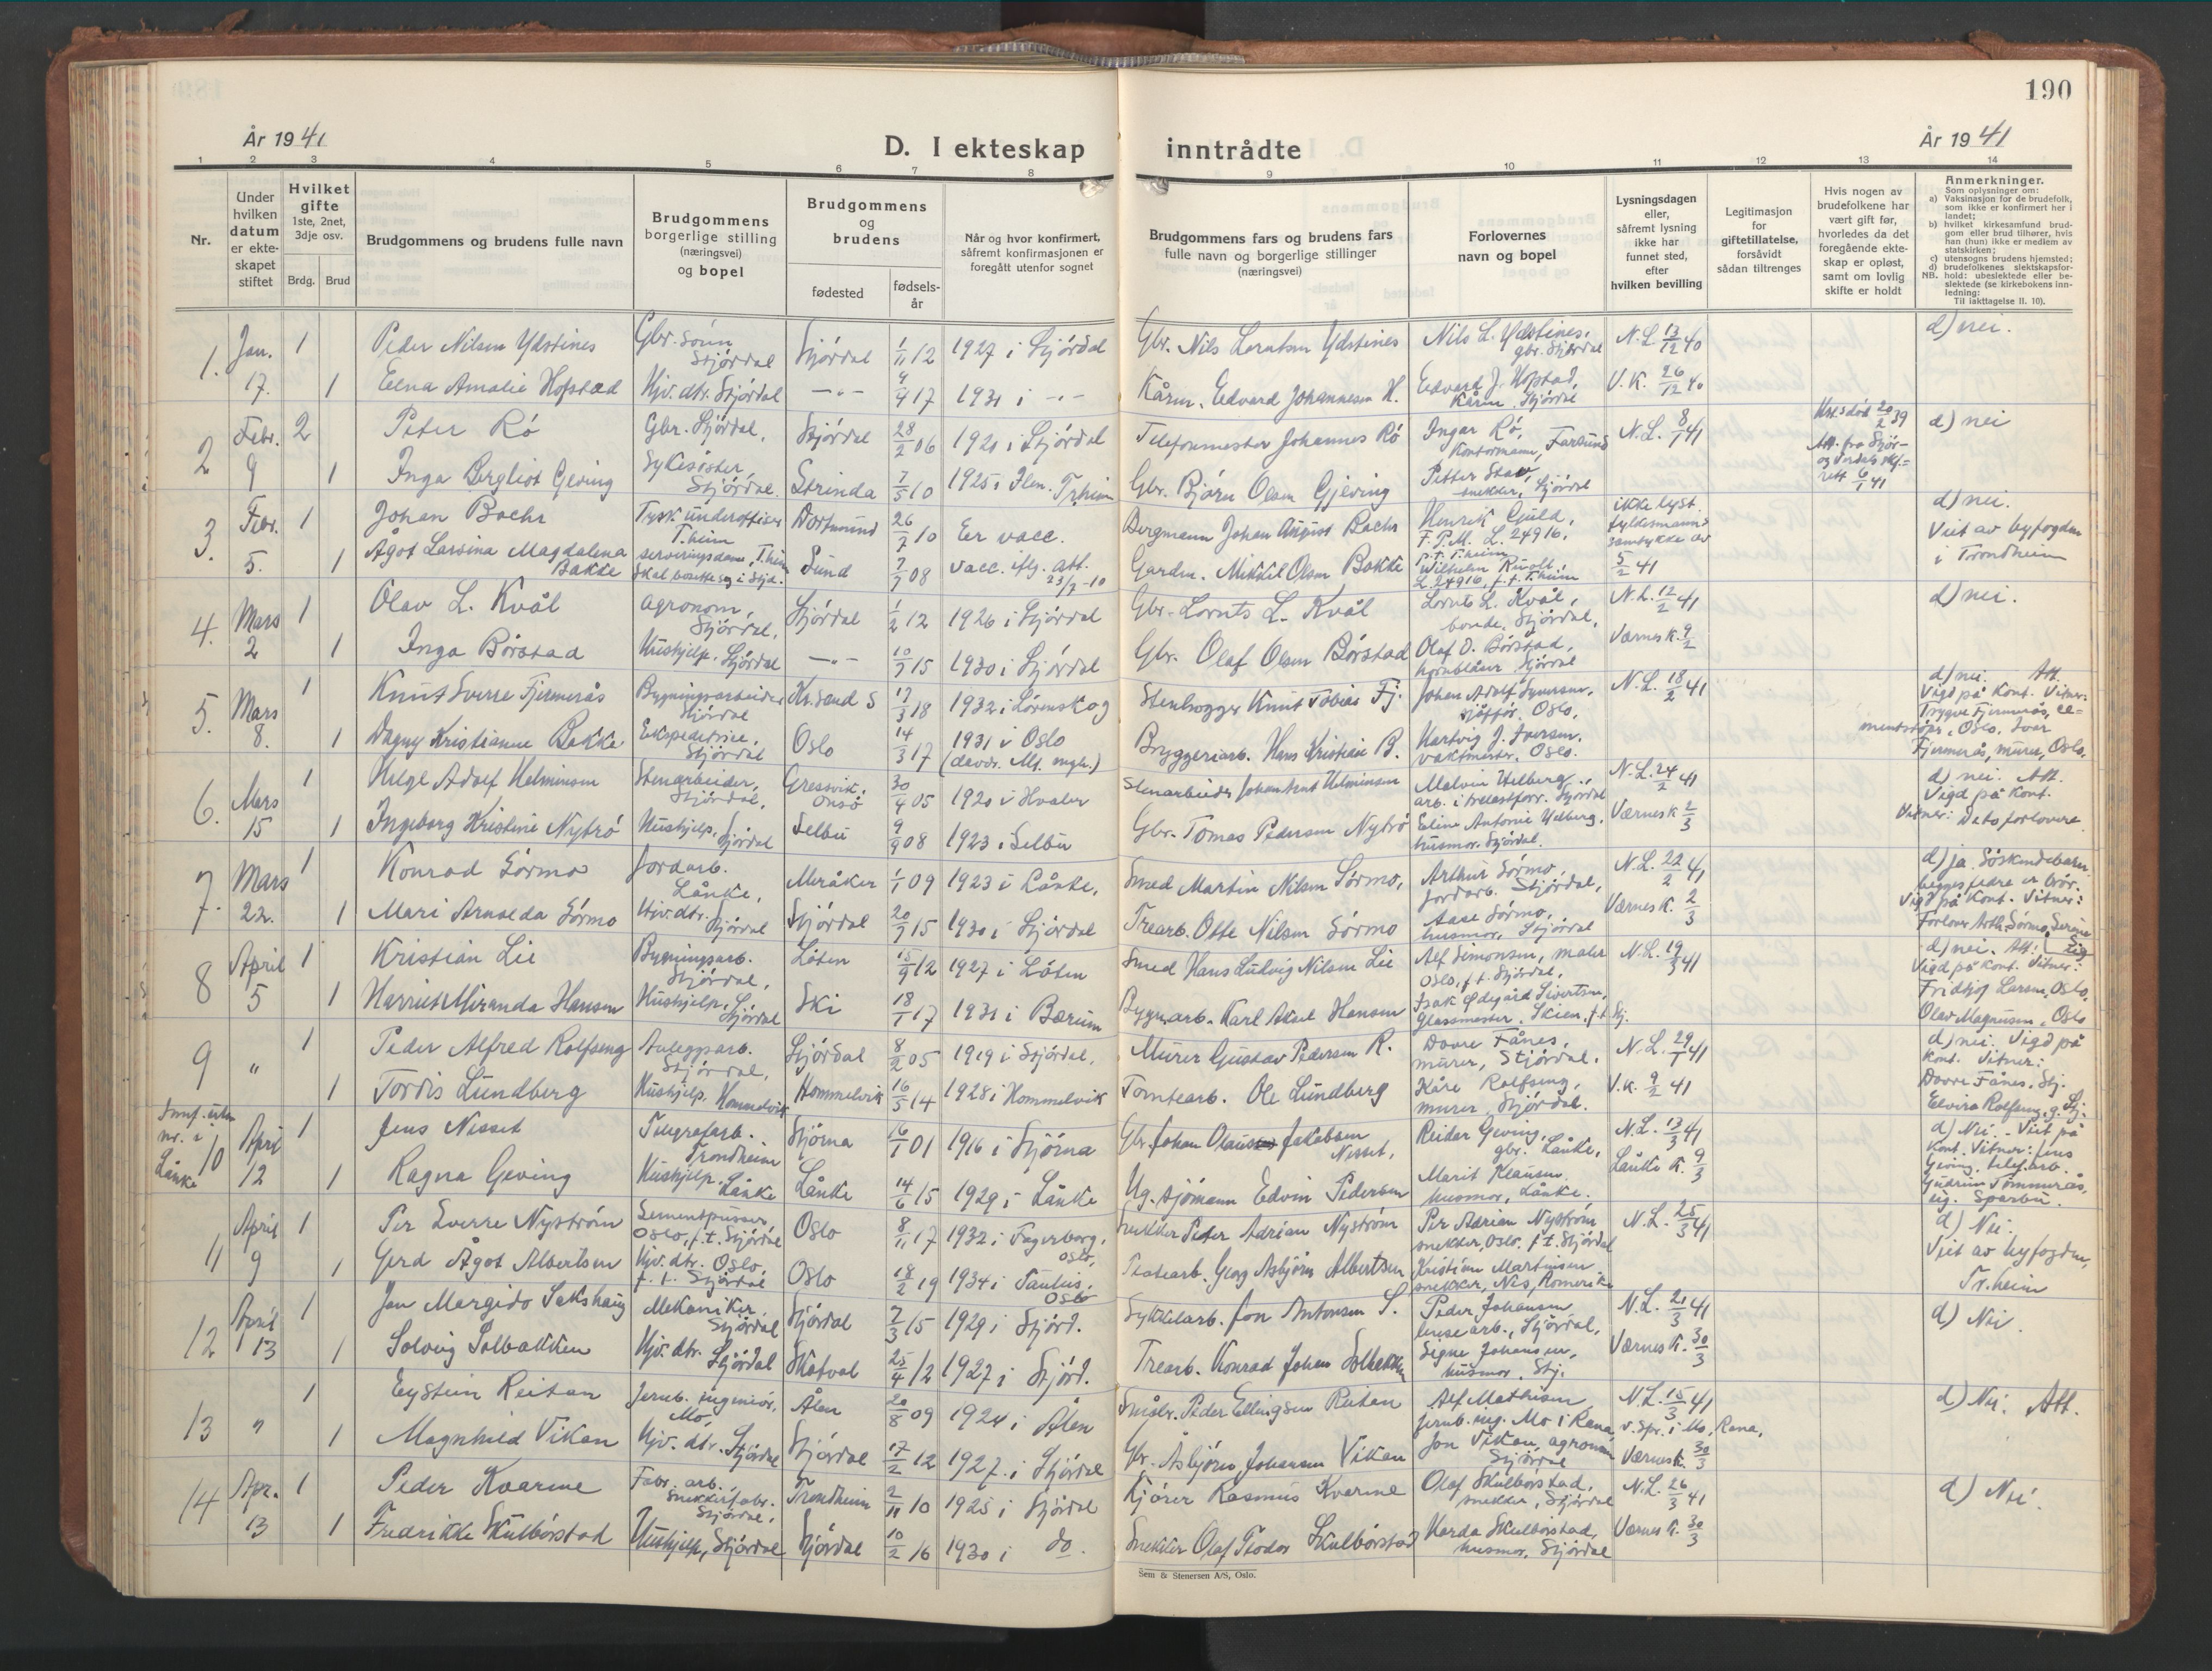 190
År 1941
D. I ekteskap inntrådte
År 1941
1 2 3 4 5 6 7 8 9 10 11 12 13 14
Nr.
Under hvilken datum er ekteskapet stiftet
Hvilket gifte 1ste, 2net, 3dje osv.
Brdg. Brud
Brudgommens og brudens fulle navn
Brudgommens borgerlige stilling (næringsvei) og bopel
Brudgommens og brudens
fødested
fødselsår
Når og hvor konfirmert, såfremt konfirmasjonen er foregått utenfor sognet
Brudgommens fars og brudens fars fulle navn og borgerlige stillinger (næringsvei)
Forlovernes navn og bopel
Lysningsdagen eller, såfremt lysning ikke har funnet sted, efter hvilken bevilling
Legitimasjon for giftetillatelse, forsåvidt sådan tiltrenges
Hvis nogen av brudefolkene har vært gift før, hvorledes da det foregående ekteskap er opløst, samt om lovlig skifte er holdt
Anmerkninger.
Som oplysninger om:
a) Vaksinasjon for de brudefolk, som ikke er konfirmert her i landet;
b) hvilket kirkesamfund brudgom eller brud tilhører, hvis han (hun) ikke er medlem av statskirken;
c) utensogns brudens hjemsted;
d) brudefolkenes slektskapsforhold: ubeslektede eller beslektede (se kirkebokens innledning:
NB.
Til iakttagelse II. 10).
1. Jan. 17. 1 Peder Nilsen Ydstines Gbr. sønn Stjørdal Stjørdal 1/11 12 1927 i Stjørdal Gbr. Nils Lorntsen Ydstines Nils L. Ydstines, gbr. Stjørdal N.L. 13/12 40 d) nei.
1 Edna Amalie Hofstad Hjv. dtr. Stjørdal -"- 4/4 17 1931 i -"- Kårm. Edvard Johannesen H. Edvard J. Hofstad, Kårm. Stjørdal V.K. 26/12 40
2 Febr. 9 2 Peter Rø Gbr. Stjørdal, Stjørdal 28/2 06 1921 i Stjørdal Telefonmester Johannes Rø Ingar Rø, Kontormann, Farsund N.L. 8/1 41 d) nei
1 Inga Bergliot Geving Sykesøster, Stjørdal. Strinda 7/5 10 1925 i Ilen. Tr.heim Gbr. Bjørn Olsen Gjeving Petter Stav snekker, Stjørdal
3. Febr. 5. 1 Johan Bachr Tysk underoffiser T.heim Dortmund 26/7 10 Er vacc. Bergmann Johan August Bachr Henrik Guld, F.P.M. L. 24916, p.t. T.heim ikke lyst. d) nei. Viet av byfogden i Trondheim
1 Ågot Larsina Magdalena Bakke serveringsdame, T.heim Sund 7/7 08 vacc. iflg. att. 23/7-10 Gardm. Mikkel Olsen Bakke Wilhelm L. 24916, p.t. T.heim 5/2 41
4. Mars 2 1 Olav L. Kvål agronom, Stjørdal, Stjørdal 1/2 12 1926 i Stjørdal Gbr. Lornts L. Kvål Lornts L. Kvål, bonde, Stjørdal, N.L. 12/2 41 d) nei.
1 Inga Børstad Hushjelp. Stjørdal -"- 10/7 15 1930 i Stjørdal Gbr. Olaf Olsen Børstad Olaf O. Børstad, hornblåser Stjørdal Værnes K. 9/2
5. Mars 8. 1 Knut Sverre Fjermerås Bygningsarbeider Stjørdal Kr.sand S 17/3 18 1932 i Lørenskog Stenhogger Knut Tobias Fj. Johan Adolf Syversen, sjåfør. Oslo, N.L. 18/2 41 d) nei. Att. Vigd på Kont. Vitner: Trygve Fjermerås, cementstøper, Oslo. Ivar Fjermerås, murer, Oslo.
1 Dagny Kristianne Bakke Ekspeditrise, Stjørdal Oslo 14/3 17 1931 i Oslo Bryggeriarb. Hans Kristian B. Hartvig J. Iversen. vaktmester. Oslo.
6. Mars 15 1 Helge Adolf Helminsen Stenarbeider, Stjørdal, Gressvik, Onsø 30/4 05 1920 i Hvaler Stenarbeider Johan Arnt Helminsen Malvin Helberg, arb. i trelastforr. Stjørdal N.L. 24/2 41 d) nei. Att. Vigd på Kont. Vitner: De to forlovere.
1 Ingeborg Kristine Nytrø Hushjelp, Stjørdal Selbu 9/9 08 1923 i Selbu Gbr. Tomas Pedersen Nytrø Eline Antonie Helberg, husmor, Stjørdal. Værnes K 2/3
7. Mars 22. 1 Konrad Sørmo Jordarb. Lånke, Meråker 1/1 09 1923 i Lånke, Smed Martin Nilsen Sørmo, Arthur Sørmo, Jordarb. Stjørdal, N.L. 22/2 41 d) ja. Søskendebarn, begges fedre er brør. Vigd på Kont. Vitner: Forlover Arth. Sørmo,
1 Mari Arnolda Sørmo Hjv. dtr. Stjørdal Stjørdal 20/7 15 1930 i Stjørdal Trearb. Otte Nilsen Sørmo Aase Sørmo, husmor, Stjørdal Værnes K. 2/3
8 April 5 1 Kristian Lie Bygningsarb. Stjørdal, Løten 15/9 12 1927 i Løten Smed Hans Ludvig Nilsen Lie Alf Simonsen, maler Oslo, p.t. Stjørdal, N.L. 19/3 41 d) nei. Att. Vigd på Kont. Vitner: Fridtjof Larsen, Oslo, Olav Magnusen, Oslo
1 Harriet Miranda Hansen Hushjelp, Stjørdal Ski 18/1 17 1931 i Bærum Bygn.arb. Karl Aksel Hansen Isak Ødegård Sivertsen, Glassmester, Skien, p.t. Stj.
9 " 1 Peder Alfred Rolfseng Anleggsarb. Stjørdal, Stjørdal 8/2 05 1919 i Stjørdal, Murer Gustav Pedersen R. Dovre Fånes, murer, Stjørdal. N.L. 29/1 41 d) nei. Vigd på Kont. Vitner: Dovre Fånes, Stj. Elvira Rolfseng, g. Stj.
1 Tordis Lundberg Hushjelp. Hommelvik Hommelvik 16/5 14 1928 i Hommelvik Tomtearb. Ole Lundberg Kåre Rolfseng, murer, Stjørdal. V.K. 9/2 41
Innf. uten nr. i Lånke
10 April 12 1 Jens Nesset Telegrafarb. Trondheim Stjørna 16/1 01 1916 i Stjørna Gbr. Johan Olaus Jakobsen Nesset, Reidar Geving, gbr. Lånke, N.L. 13/3 41 d) Nei. - Viet på Kont. Vitner: Jens Geving, telef.arb. Gudrun Tømmerås, eig. Sparbu.
1 Ragna Geving Hushjelp. Lånke Lånke 14/6 15 1929 i Lånke Ug. sjømann Edvin Pedersen Marit Klausen husmor, Lånke. Lånke K. 9/3
11 April 9 1 Per Sverre Nystrøm Sementpusser Oslo, p.t. Stjørdal Oslo 8/11 17 1932 i Fagerborg, Oslo, Snekker Peder Adrian Nystrøm Per Adrian Nystrøm snekker, Oslo. p.t. Stjørdal N.L. 25/3 41 d) Nei. Viet av byfogden, Tr.heim
1 Gerd Ågot Albertsen Hjv. dtr. Oslo, p.t. Stjørdal Oslo 18/2 19 1934 i Paulus, Oslo Georg Asbjørn Albertsen Kristian Martinsen snekker, Nes, Romerike
12 April 13 1 Jon Margido Sakshaug Mekaniker, Stjørdal Stjørdal 7/3 15 1929 i Stjørd. Sykkelarb. Jon Antonsen S. Peder Johansen linsearb., Stjørdal, N.L. 21/3 41 d) Nei.
1 Solveig Solbakken Hjv. dtr. Stjørdal Skatval 25/4 12 1927 i Stjørd. Trearb. Konrad Johan Solbakken Signe Johansen, husmor, Stj. Værnes K. 30/3
13 " 1 Eystein Reitan Jernb. ingeniør, Mo, Ålen 20/8 09 1924 i Ålen Småbr. Peder Ellingsen Reitan Alf Mathisen jernb. ing. Mo i Rana N.L. 15/3 41 v. spr. i Mo, Rana, d) Nei. Att.
1 Magnhild Vikan Hjv. dtr. Stjørdal Stjørdal 17/2 12 1927 i Stjørdal Gbr. Asbjørn Johansen Vikan Jon Vikan, agronom Stjørdal Værnes K. 30/3
14 Apr. 13 1 Peder Kvarme Fabr. arb. Snekkerfabr. Stjørdal, Trondheim 2/11 10 1925 i Stjørdal Kjører Rasmus Kvarme Olaf Skulbørstad, snekker, Stjørdal N.L. 26/3 41 d) Nei.
1 Fredrikke Skulbørstad Hushjelp, Stjørdal Stjørdal 10/2 16 1930 i do. Snekker Olaf Peodor Skulbørstad Harda Skulbørstad, husmor, Stjørdal Værnes K. 30/3
Sem & Stenersen A/S, Oslo.